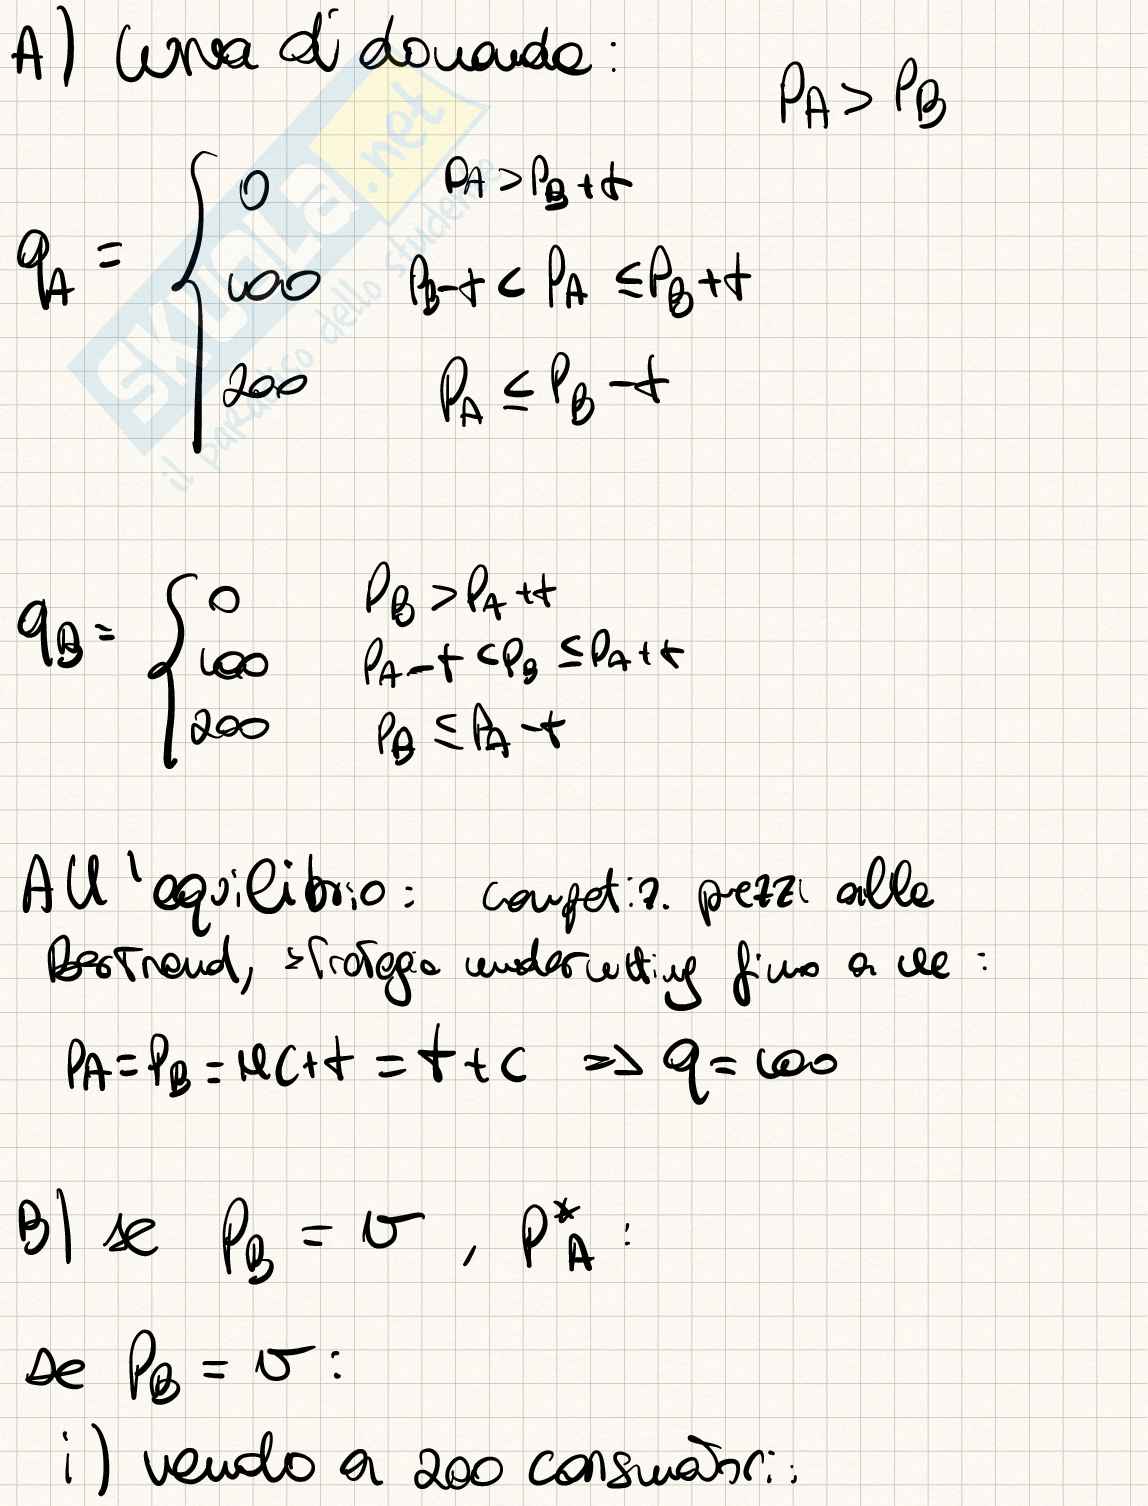 A) Curva di domanda:
PA > PB
qA =
0 PA > PB + t
100 PB - t < PA ≤ PB + t
200 PA ≤ PB - t
qB =
0 PB > PA + t
100 PA - t < PB ≤ PA + t
200 PB ≤ PA - t
All'equilibrio: competiz. prezzi alla
Bertrand, strategia undercutting fino a che:
PA = PB = MC + t = t + c => q = 100
B) se PB = v, P*A:
se PB = v:
i) vendo a 200 consumatori:
SKUOLA.net
il paradiso dello studente